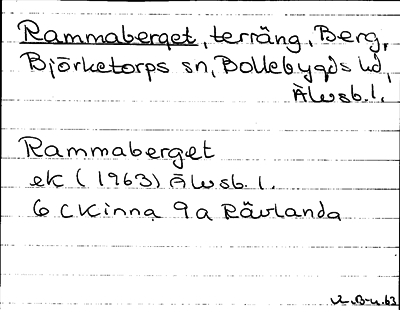 Rammaberget, terräng, Berg,
Björketorps sn, Bollebygds hd,
Älvsb. l.
Rammaberget
ek (1963) Älvsb. l.
6 C Kinna 9a Rävlanda